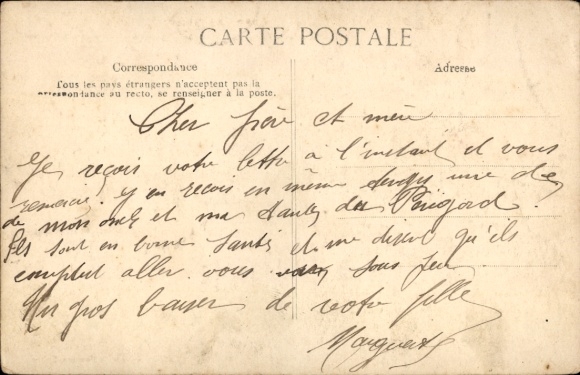 CARTE POSTALE
Correspondance
Adresse
Tous les pays étrangers n'acceptent pas la
correspondance au recto, se renseigner à la poste.
Cher frère et mère
Je reçois votre lettre à l'instant et vous
remercie. J'en reçois en même temps une de
de mon oncle et ma tante du Périgord.
Ils sont en bonne santé et me disent qu'ils
comptent aller vous voir sous peu
Un gros baiser de votre fille
Marguerite